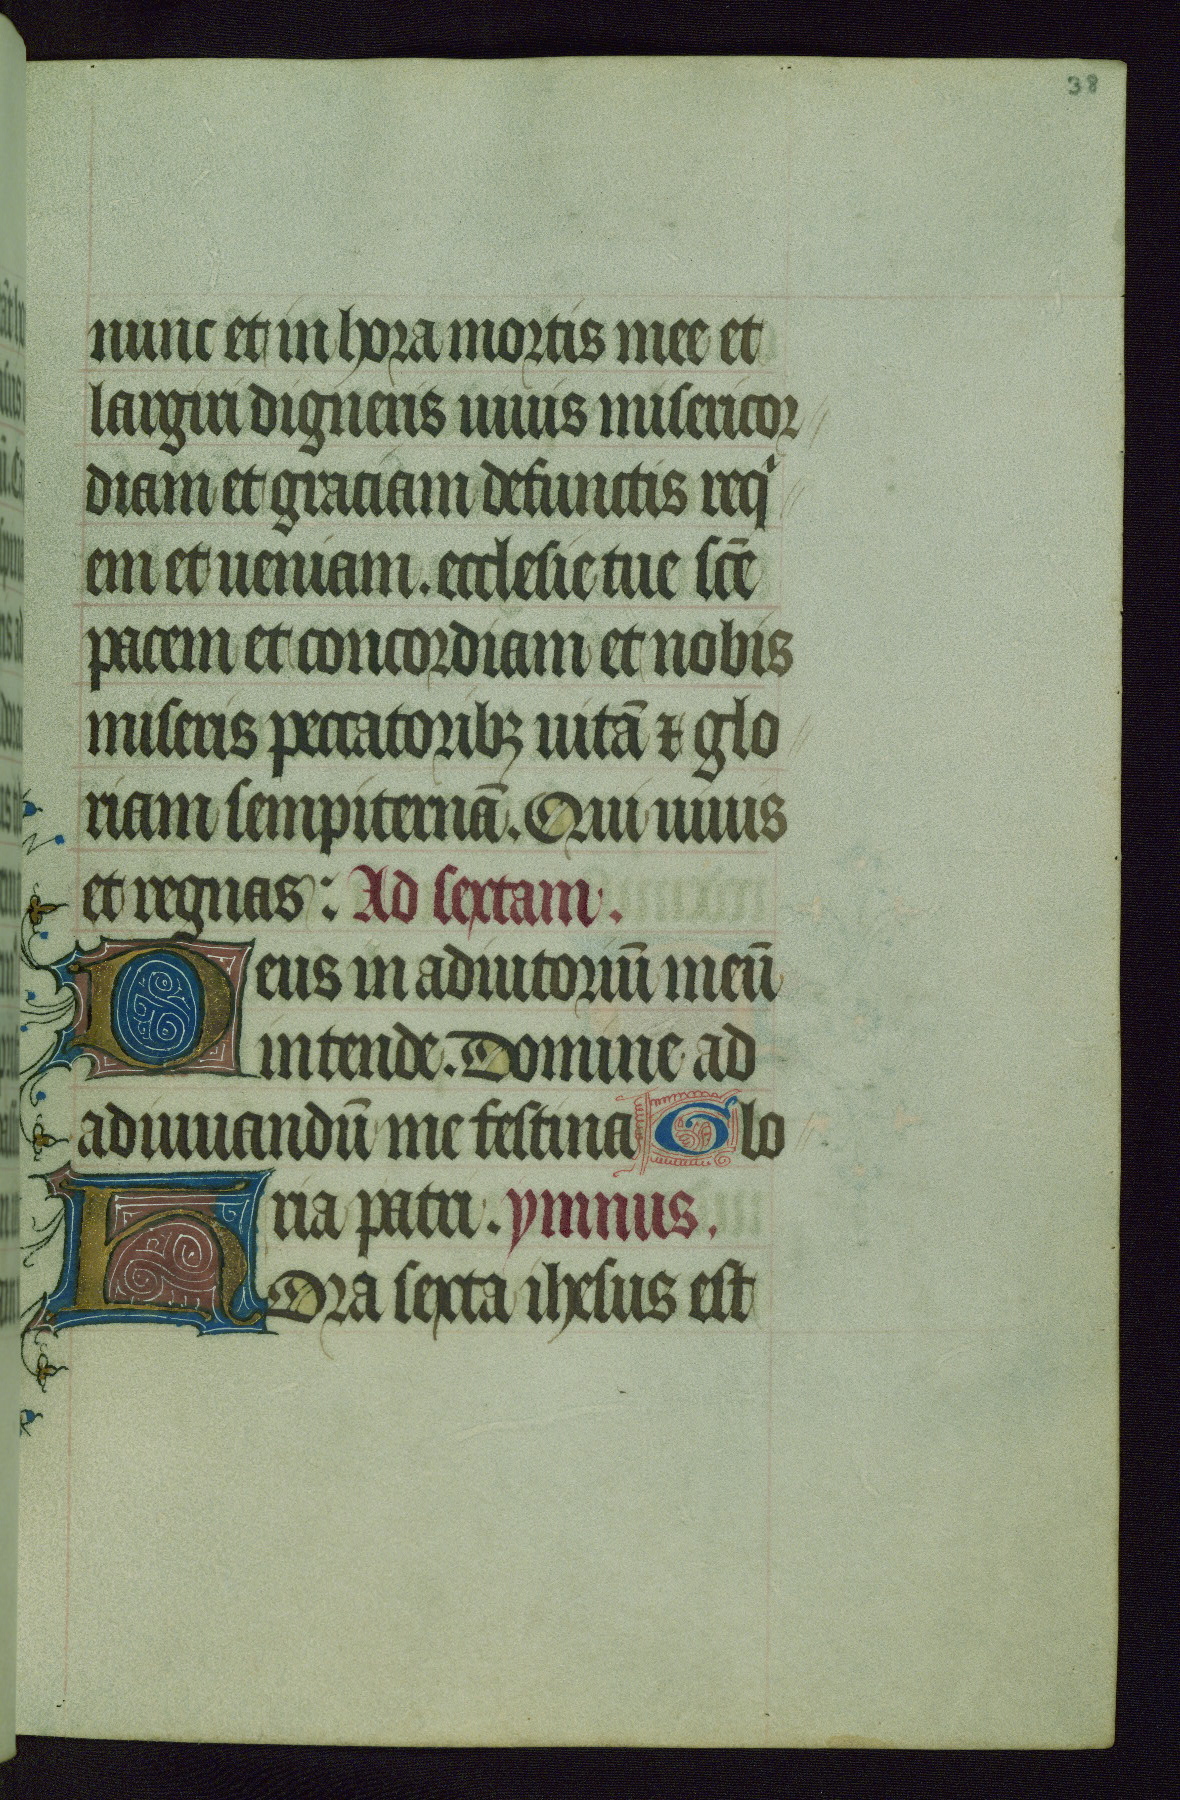 38
nunc et in hora mortis mee et
largiri digneris uiuis misericor
diam et graciam defunctis reqⁱ
em et ueniam. ecclesie tue sc̄e
pacem et concordiam et nobis
miseris peccatoribꝫ uitā ⁊ glo
riam sempiternā. Qui uiuis
et regnas: Ad sextam.
Deus in adiutoriū meū
intende. Domine ad
adiuuandū me festina Glo
ria patri. ymnus.
HOra sexta ihesus est